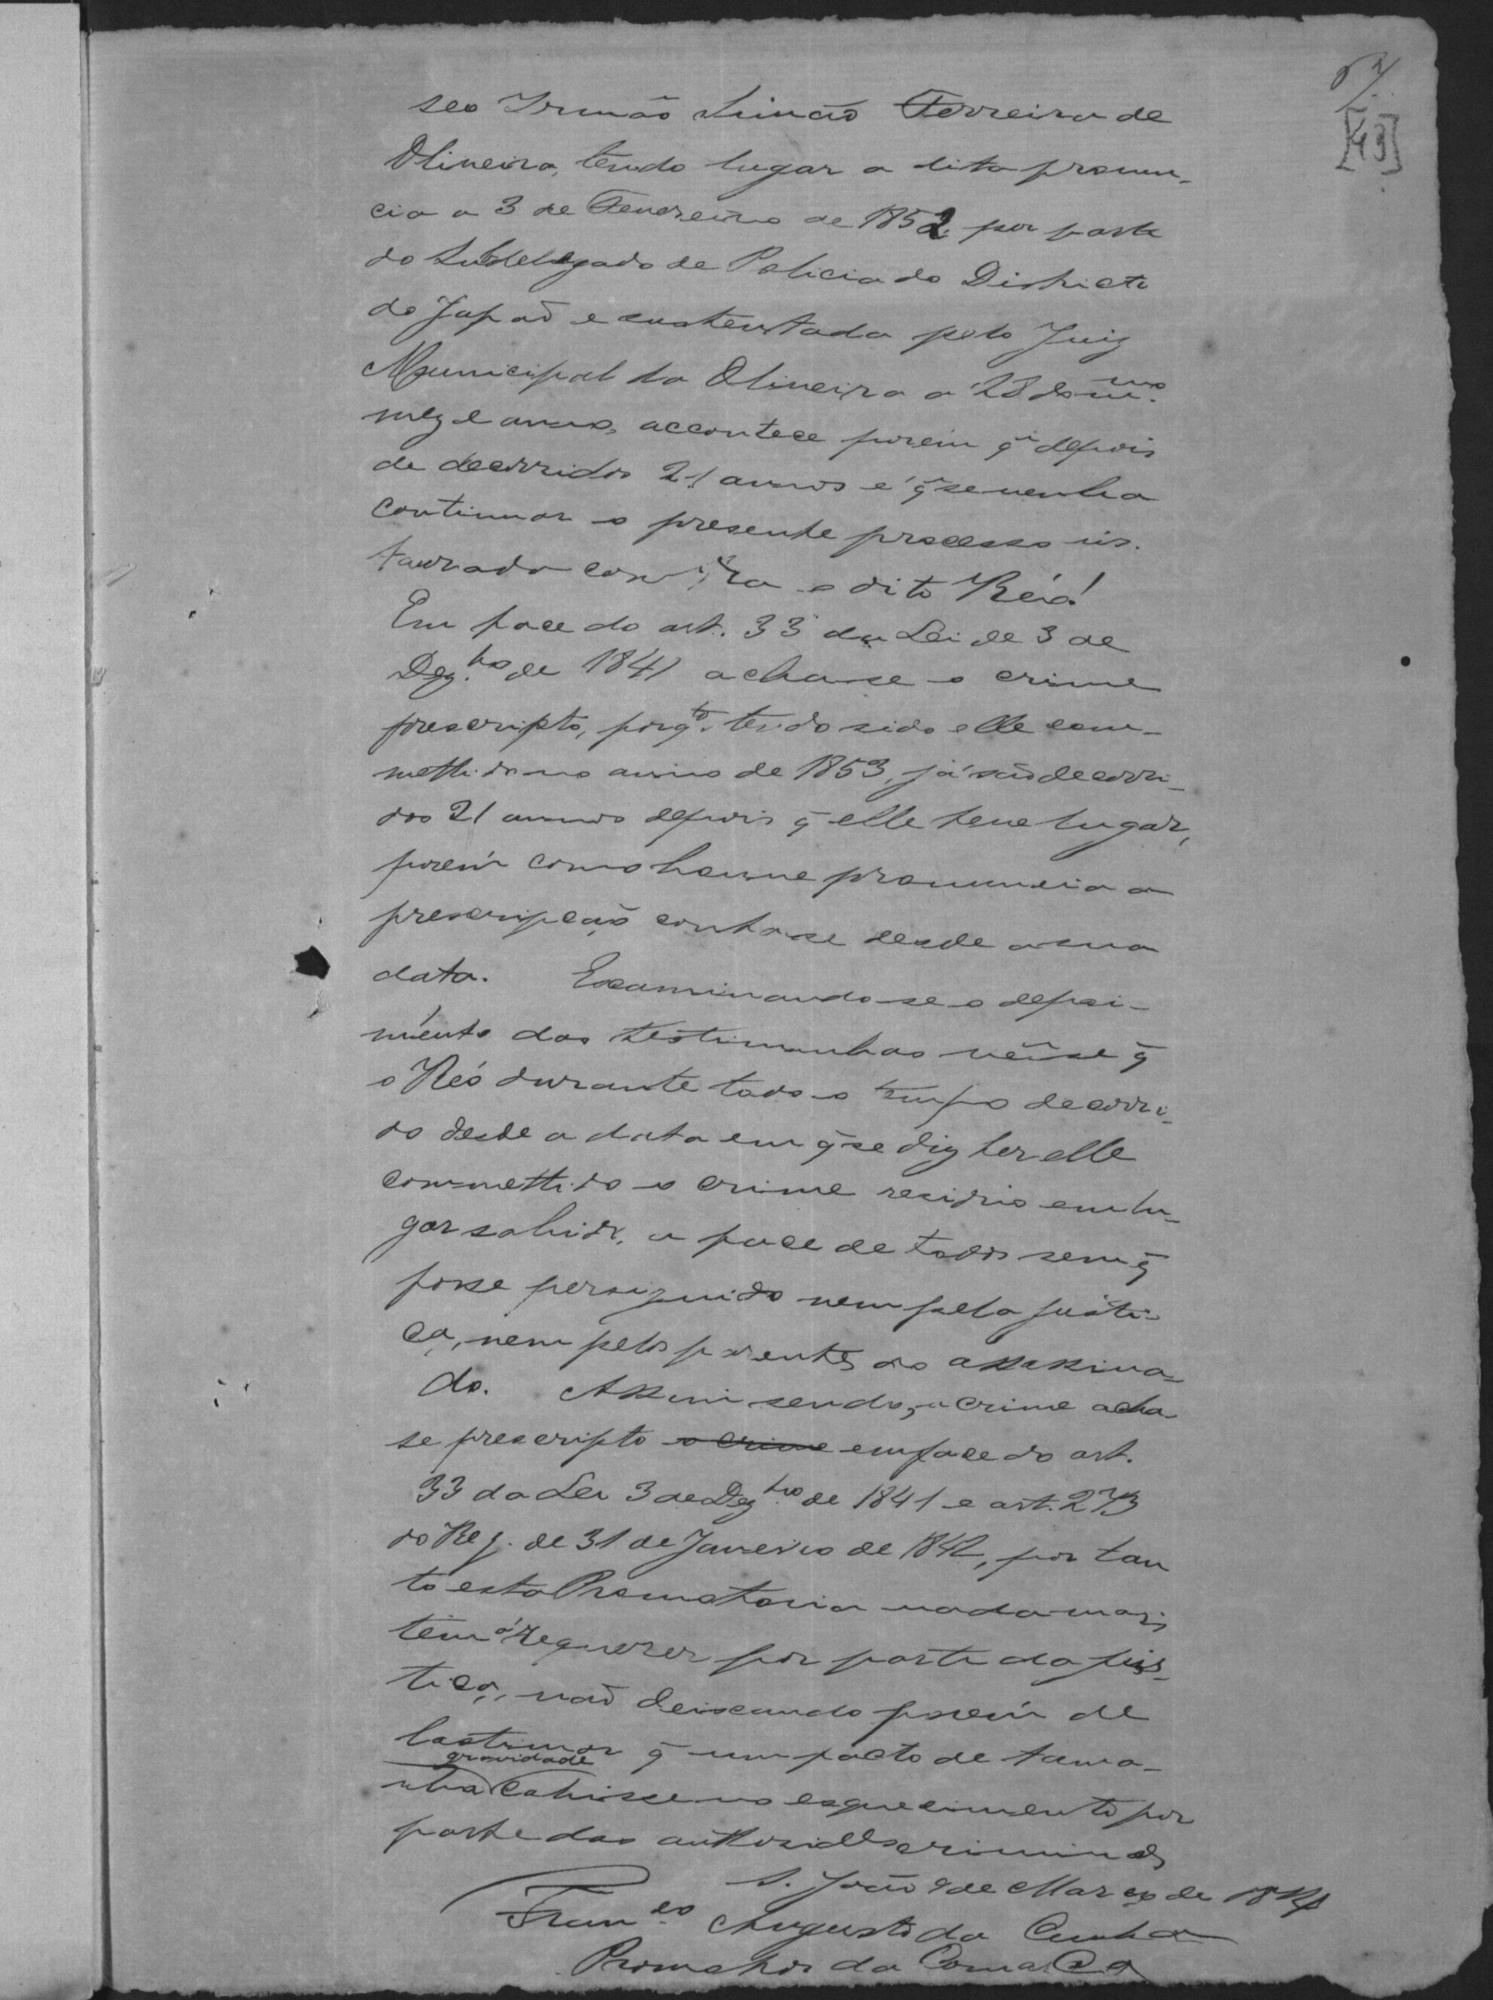 67.
[43]
seo Irmão Simião Ferreira de
Oliveira, tendo lugar a dita pronun-
cia a 3 de Fevereiro de 1852 por parte
do Subdelegado de Policia do Districto
do Japaõ e sustentada pelo Juiz
Municipal da Oliveira a 28 do m.mo
mez e anno, accontece porem q̃ depois
de decorridos 21 annos é q̃ se venha
continuar o presente processo ins-
taurado contra o dito Réo!
Em face do art. 33 da Lei de 3 de
Dez.bro de 1841 acha-se o crime
prescripto, porq.to tendo sido elle com-
mettido no anno de 1853, já são decorri-
dos 21 annos depois q̃ elle teve lugar,
porem como houve pronuncia a
prescripção conta-se desde a sua
data. Examinando-se o depoi-
mento das testimunhas vê-se q̃
o Réo durante todo o tempo decorri-
do desde a data em q̃ se diz ter elle
commettido o crime residio em lu-
gar sabido, a face de todos sem q̃
fosse persiguido nem pela justi-
ça, nem pelos parentes do assassina-
do. Assim sendo, o crime acha-
se prescripto o crime em face do art.
33 da Lei 3 de Dez.bro de 1841 e art. 273
do Reg. de 31 de Janeiro de 1842, por tan
to esta Promotoria nada mais
tem á requerer por parte da jus-
tiça, naõ deixando porem de
lastimar q̃ um facto de tama-
nha gravidade cahisse no esquecimento por
parte das authorid.es criminaes
S. João 9 de Março de 1874
Fran.co Augusto da Cunha
Promotor da Comarca